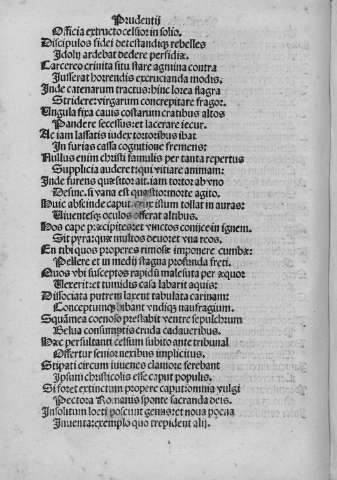 Prudentij
Officia extructo celsior in solio.
Discipulos fidei detestandiq; rebelles
Idolij ardebat dedere perfidiæ.
Carcereo crinita situ stare agmina contra
Iusserat horrendis excrucianda modis.
Inde catenarum tractus: hinc lorea flagra
Stridere: virgarum concrepitare fragor.
Ungula fixa cauis costarum cratibus altos
Pandere secessus: et lacerare iecur.
Ac iam lassatis iudex tortoribus ibat
In furias cassa cognitione fremens:
Nullus enim christi famulis per tanta repertus
Supplicia auderet: qui vitiare animam:
Inde furens quæsitor ait. iam tortor ab vno
Desine. si vana est quæstio: morte agito.
Huic abscinde caput: crux istum tollat in auras:
Uiuentesq; oculos offerat alitibus.
Hos cape præcipites: et vinctos conijce in ignem.
Sit pyra: quæ multos deuoret vna reos.
En tibi quos properes rimosæ imponere cumbæ:
Pellere et in medij stagna profunda freti.
Quos vbi susceptos rapidū male suta per æquor
Uexerit: et tumidis cæsa labarit aquis:
Dissociata putrem laxent tabulata carinam:
Conceptumq; bibant vndiq; naufragium.
Squāmea cœnoso præstabit ventre sepulchrum
Belua consumptis cruda cadaueribus.
Hæc persultanti celsum subito ante tribunal
Offertur senior nexibus implicitus.
Stipati circum iuuenes clamore ferebant
Ipsum christicolis esse caput populis.
Si foret extinctum propere caput: omnia vulgi
Pectora Romanis sponte sacranda deis.
Insolitum loeti poscunt genus: et noua pœna
Inuenta: exemplo quo trepident alij.